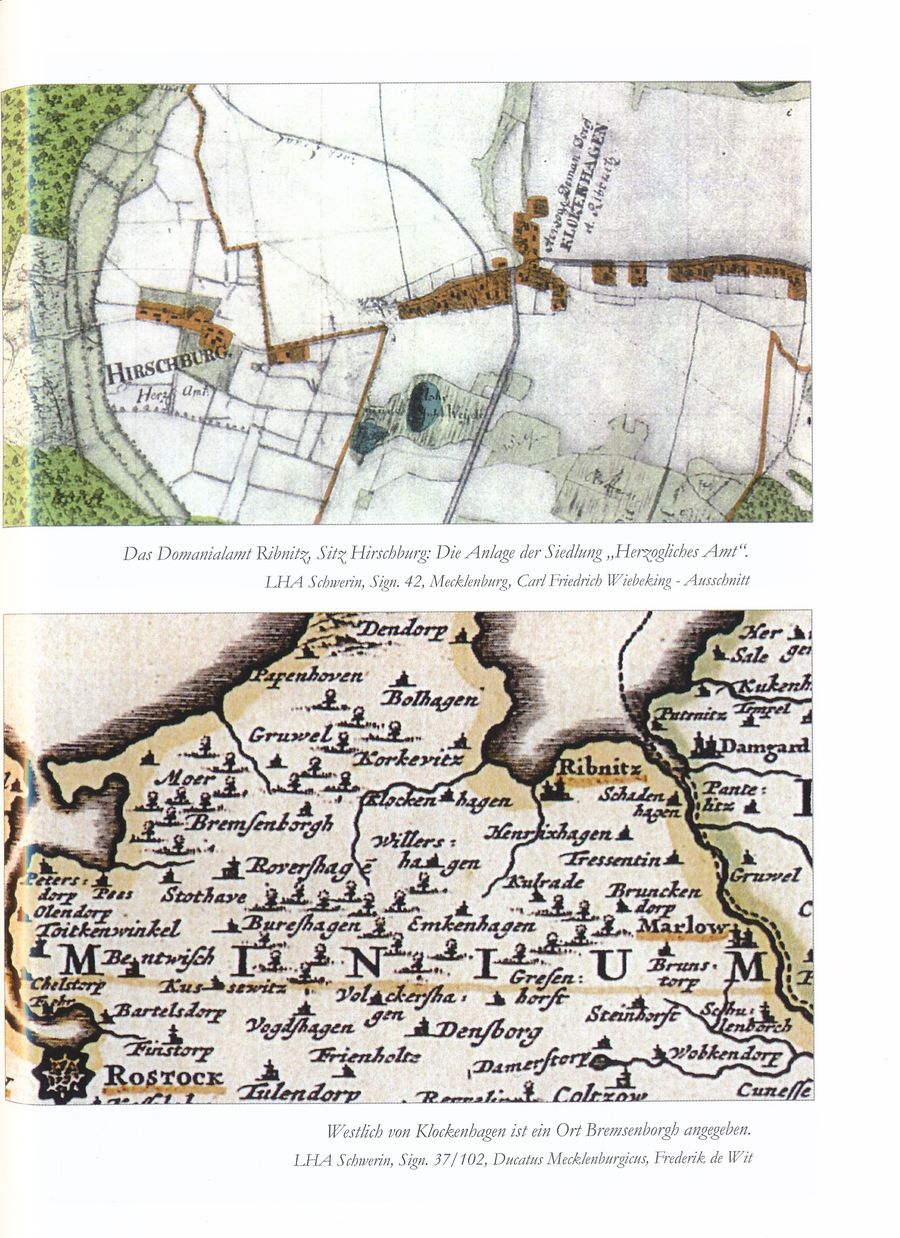 KLOKENHAGEN
HIRSCHBURG.
Herz. Amt.
Das Domanialamt Ribnitz, Sitz Hirschburg: Die Anlage der Siedlung „Herzogliches Amt“.
LHA Schwerin, Sign. 42, Mecklenburg, Carl Friedrich Wiebeking - Ausschnitt
Dendorp
Her
Sale
Papenhoven
Kukenh
Bolhagen
Putrnitz
Tmpel
Gruwel
Damgard
Korkevitz
Ribnitz
Moer
Klocken hagen
Schaden
hagen
Pante:
litz
Bremsenborgh
Willers:
hagen
Henrixhagen
Tressentin
Rovershagē
Gruwel
Peters:
dorp
Pees
Stothave
Kulrade
Bruncken
dorp
Olendorp
Toitkenwinkel
Bureshagen
Emkenhagen
Marlow
M I N I U M
Bentwisch
Gresen:
horst
Bruns:
torp
Chelstorp
Kussewitz
Volckersha:
gen
Steinhorst
Schu:
lenborch
Bartelsdorp
Vogdshagen
Densborg
Finstorp
Frienholtz
Damerstorp
Wobkendorp
ROSTOCK
Tulendorp
Coltzow
Cunesse
Westlich von Klockenhagen ist ein Ort Bremsenborgh angegeben.
LHA Schwerin, Sign. 37/102, Ducatus Mecklenburgicus, Frederik de Wit